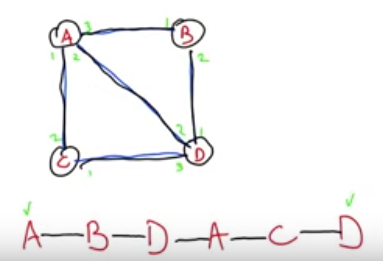 A 3 1 B
1 2 2
2 2 1
C 1 3 D
A—B—D—A—C—D